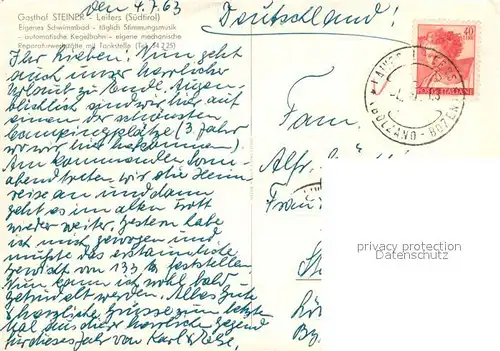 den 4.7.63
Deutschland!
Gasthof STEINER - Leifers (Südtirol)
Eigenes Schwimmbad - täglich Stimmungsmusik
- automatische Kegelbahn - eigene mechanische
Reparaturwerkstätte mit Tankstelle (Tel. 14 2 25)
Ihr Lieben! Nun geht
auch unser herrlicher
Urlaub zu Ende. Augen-
blicklich sind wir hier auf
einem der schönsten
Campingplätze (3. Jahr
wo wir hier herkommen).
Am kommenden Sonn-
abend treten wir die Heim
reise an und dann
geht es im alten Trott
wieder weiter. Gestern habe
ich mich gewogen und
mußte das erstaunliche
Gewicht von 133 feststellen
Nun kann ich wohl bald
werden. Alles Gute
& herzliche Grüsse zum letzten
Mal aus dieser herrlichen Gegend
für dieses Jahr von Karl & Else.
40
POSTE ITALIANE
LAIVES LEIFERS
(BOLZANO - BOZEN)
Fam.
Alfr.
Frau
privacy protection
Datenschutz